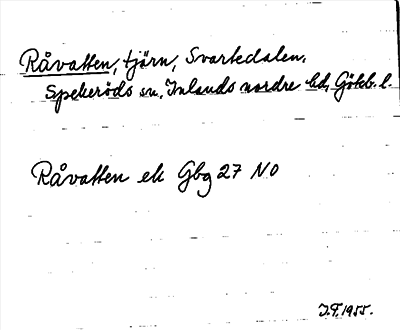 Råvatten, tjärn, Svartedalen,
Spekeröds sn, Inlands nordre hd, Göteb. l.
Råvatten ek Gbg 27 NO
I.F. 1955.